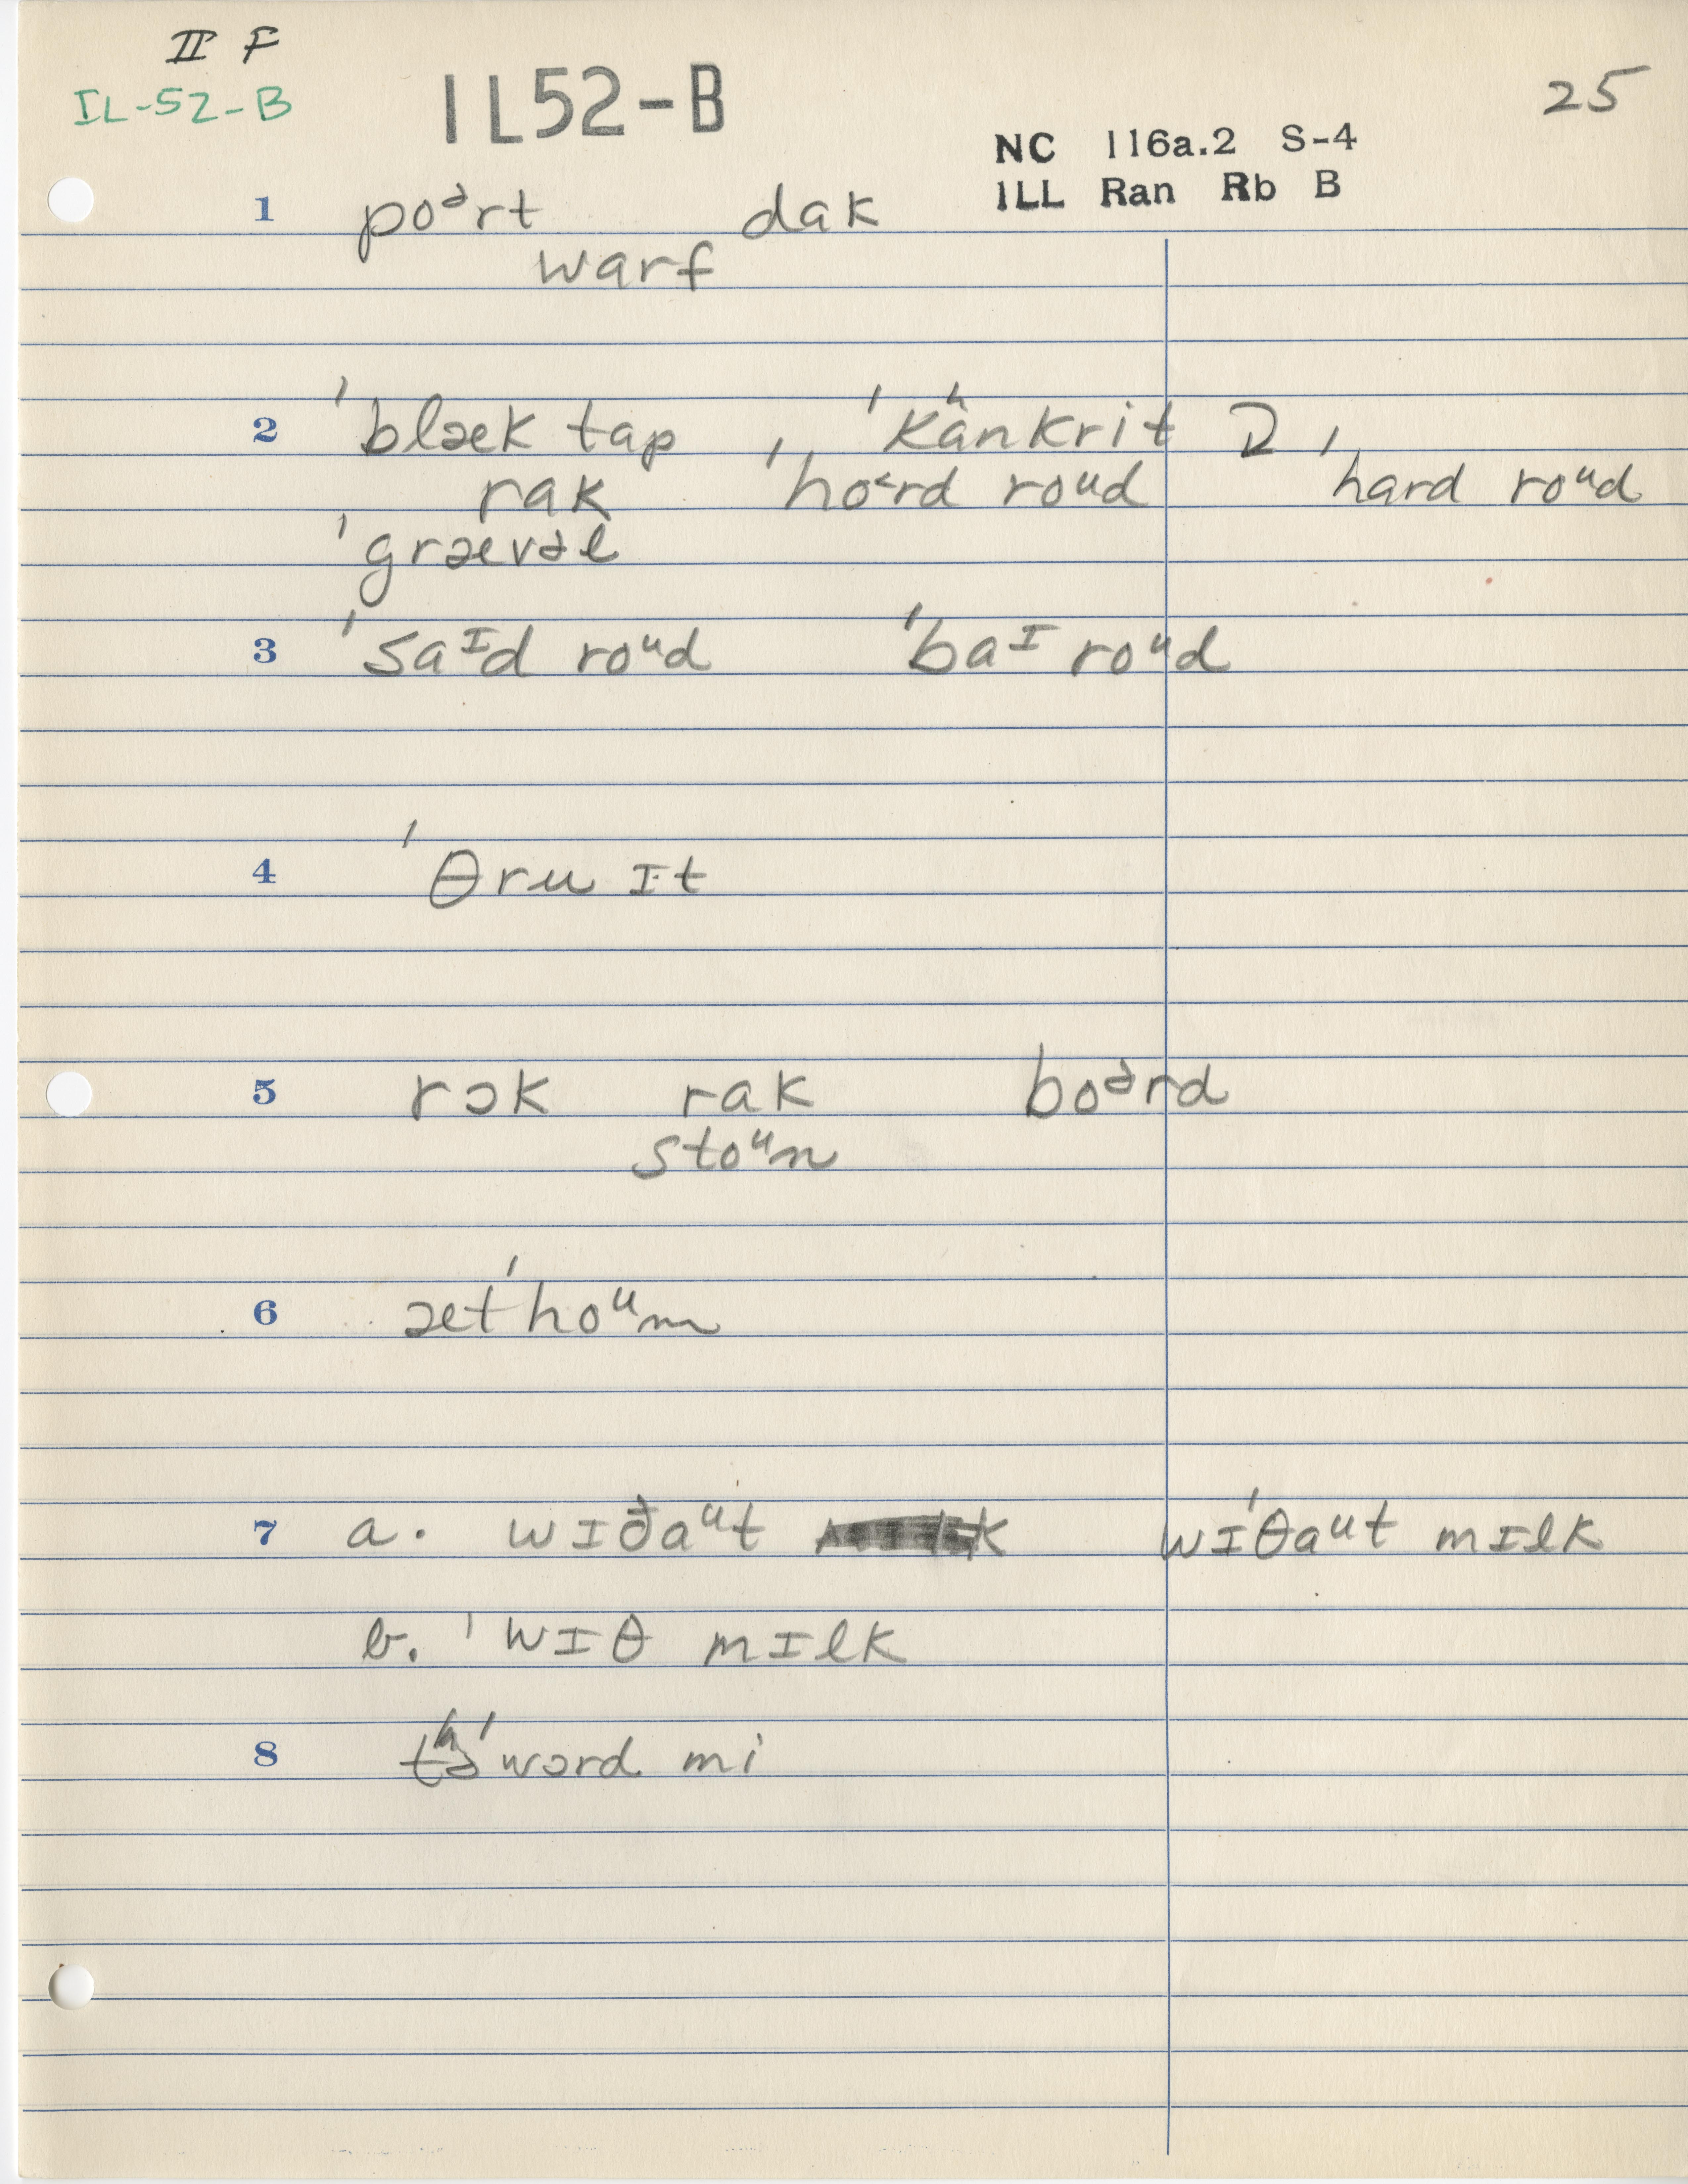 II F
IL-52-B IL52-B 25
NC 116a.2 S-4
ILL Ran Rb B
1 poᵊrt dak
warf
2 ˈblæk tap ˈkʰankrit
rak ˈho˂rd roᵘd ˈhard roᵘd
ˈgrævəl
3 ˈsaᴵd roᵘd ˈbaᴵ roᵘd
4 ˈθru ɪt
5 rɔk rak boᵊrd
stoᵘn
6 ætˈhoᵘm
7 a. wɪðaᵘt wɪˈθaᵘt mɪlk
b. ˈwɪθ mɪlk
8 tʰəˈwɔrd mi